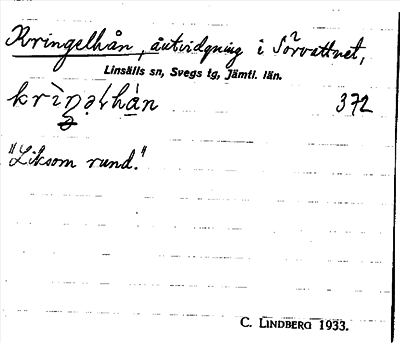 Kringelhån, åutvidgning i Sörvattnet,
Linsälls sn, Svegs tg, Jämtl. län.
krìŋəlhán 372
"Liksom rund."
C. LINDBERG 1933.